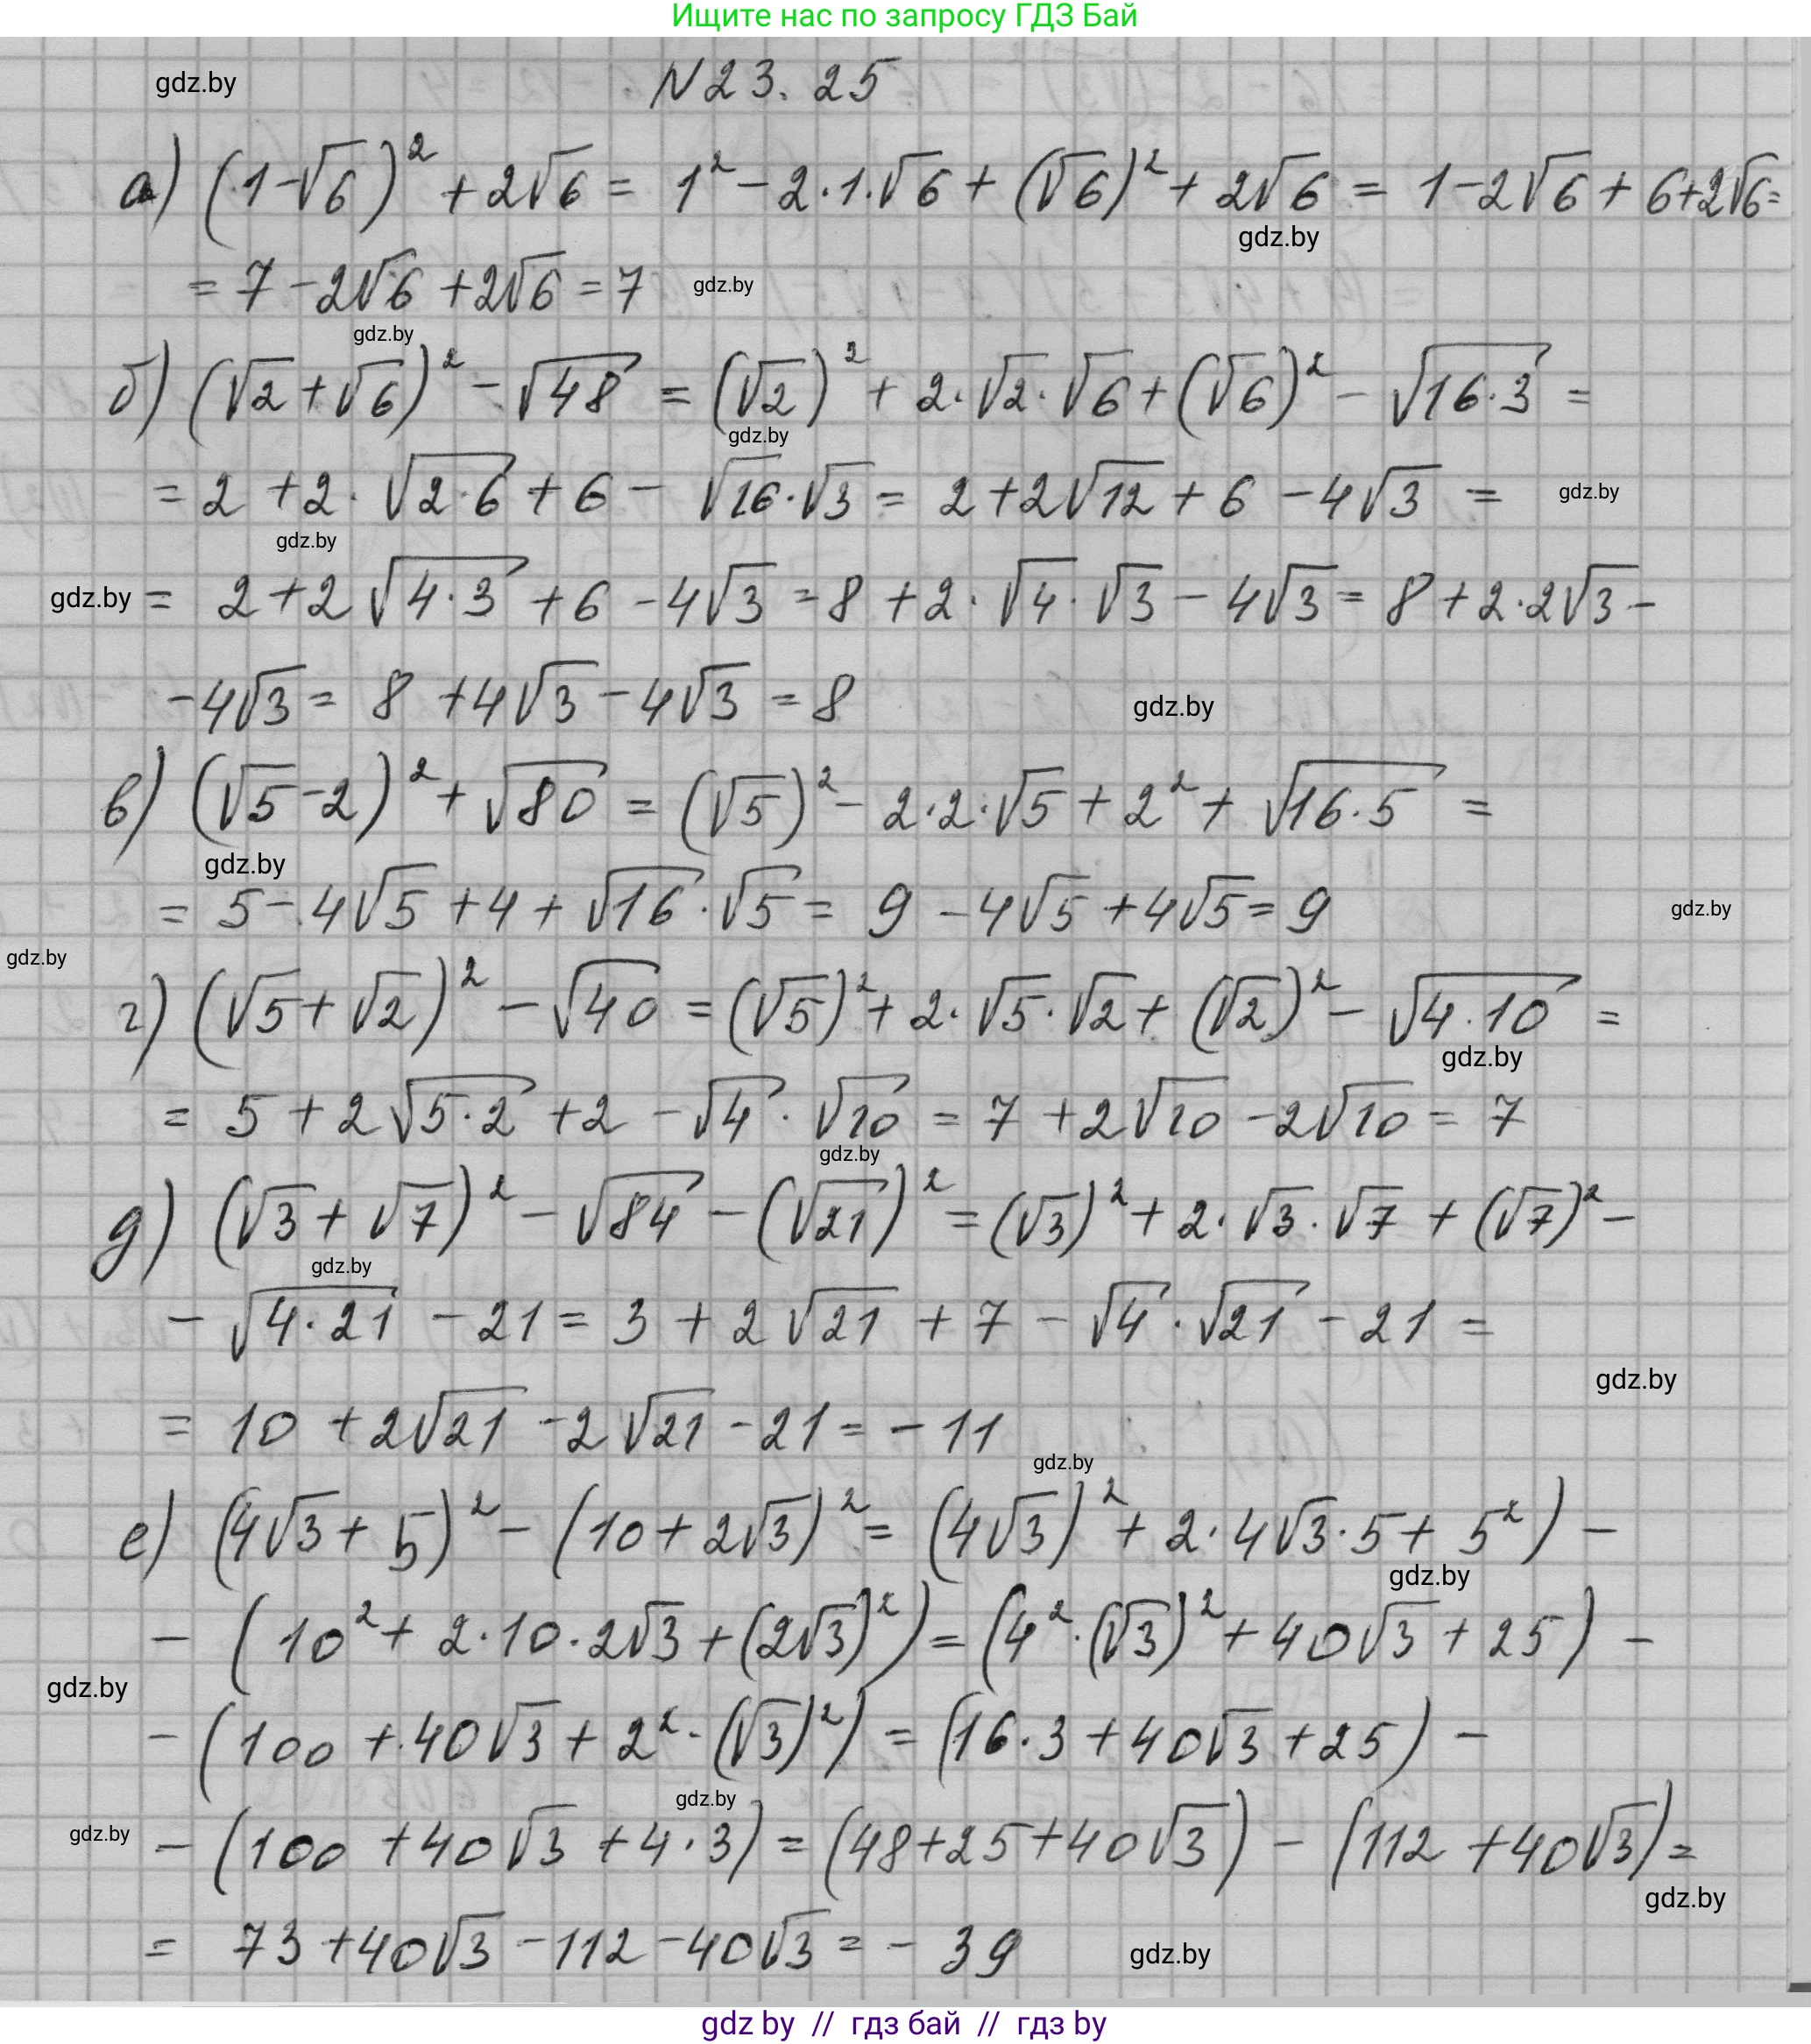 Ищите нас по запросу ГДЗ Бай
gdz.by
N23.25
а) (1-√6)² + 2√6 = 1² - 2·1·√6 + (√6)² + 2√6 = 1-2√6 + 6+2√6=
gdz.by
= 7 - 2√6 + 2√6 = 7
gdz.by
gdz.by
б) (√2+√6)² - √48 = (√2)² + 2·√2·√6+(√6)² - √16·3 =
gdz.by
= 2 + 2·√2·6 + 6 - √16·√3 = 2+2√12 + 6 - 4√3 =
gdz.by
gdz.by
gdz.by
= 2+2√4·3 + 6 - 4√3 = 8 + 2·√4·√3 - 4√3 = 8+2·2√3 -
- 4√3 = 8 + 4√3 - 4√3 = 8
gdz.by
в) (√5-2)² + √80 = (√5)² - 2·2·√5 + 2² + √16·5 =
gdz.by
= 5 - 4√5 + 4 + √16·√5 = 9 - 4√5 + 4√5 = 9
gdz.by
gdz.by
г) (√5+√2)² - √40 = (√5)² + 2·√5·√2 + (√2)² - √4·10 =
gdz.by
= 5 + 2√5·2 + 2 - √4·√10 = 7 + 2√10 - 2√10 = 7
gdz.by
д) (√3+√7)² - √84 - (√21)² = (√3)² + 2·√3·√7 + (√7)² -
gdz.by
- √4·21 - 21 = 3 + 2√21 + 7 - √4·√21 - 21 =
gdz.by
= 10 + 2√21 - 2√21 - 21 = - 11
gdz.by
е) (4√3 + 5)² - (10 + 2√3)² = (4√3)² + 2·4√3·5 + 5²) -
gdz.by
- (10² + 2·10·2√3 + (2√3)²) = (4²·(√3)² + 40√3 + 25) -
gdz.by
- (100 + 40√3 + 2²·(√3)²) = (16·3 + 40√3 + 25) -
gdz.by
gdz.by
- (100 + 40√3 + 4·3) = (48+25+40√3) - (112 + 40√3) =
gdz.by
= 73 + 40√3 - 112 - 40√3 = - 39
gdz.by
gdz by // гдз бай // гдз by